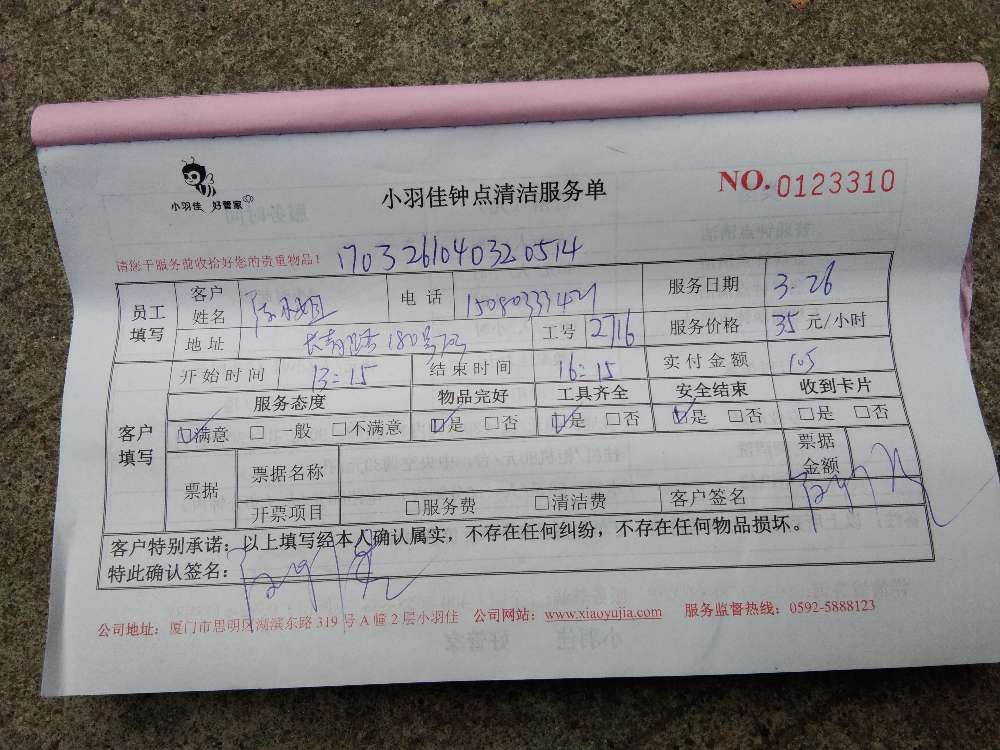 小羽佳 好管家
小羽佳钟点清洁服务单
NO. 0123310
请您于服务前收拾好您的贵重物品！ 170326104032 0514
员工填写 客户姓名 电话 服务日期 3.26
地址 工号 2716 服务价格 35 元/小时
客户填写 开始时间 13:15 结束时间 16:15 实付金额 105
服务态度 物品完好 工具齐全 安全结束 收到卡片
☑满意 □一般 □不满意 ☑是 □否 ☑是 □否 ☑是 □否 □是 □否
票据 票据名称 票据金额
开票项目 □服务费 □清洁费 客户签名
客户特别承诺：以上填写经本人确认属实，不存在任何纠纷，不存在任何物品损坏。
特此确认签名：
公司地址：厦门市思明区湖滨东路 319 号 A 幢 2 层小羽佳 公司网站：www.xiaoyujia.com 服务监督热线：0592-5888123